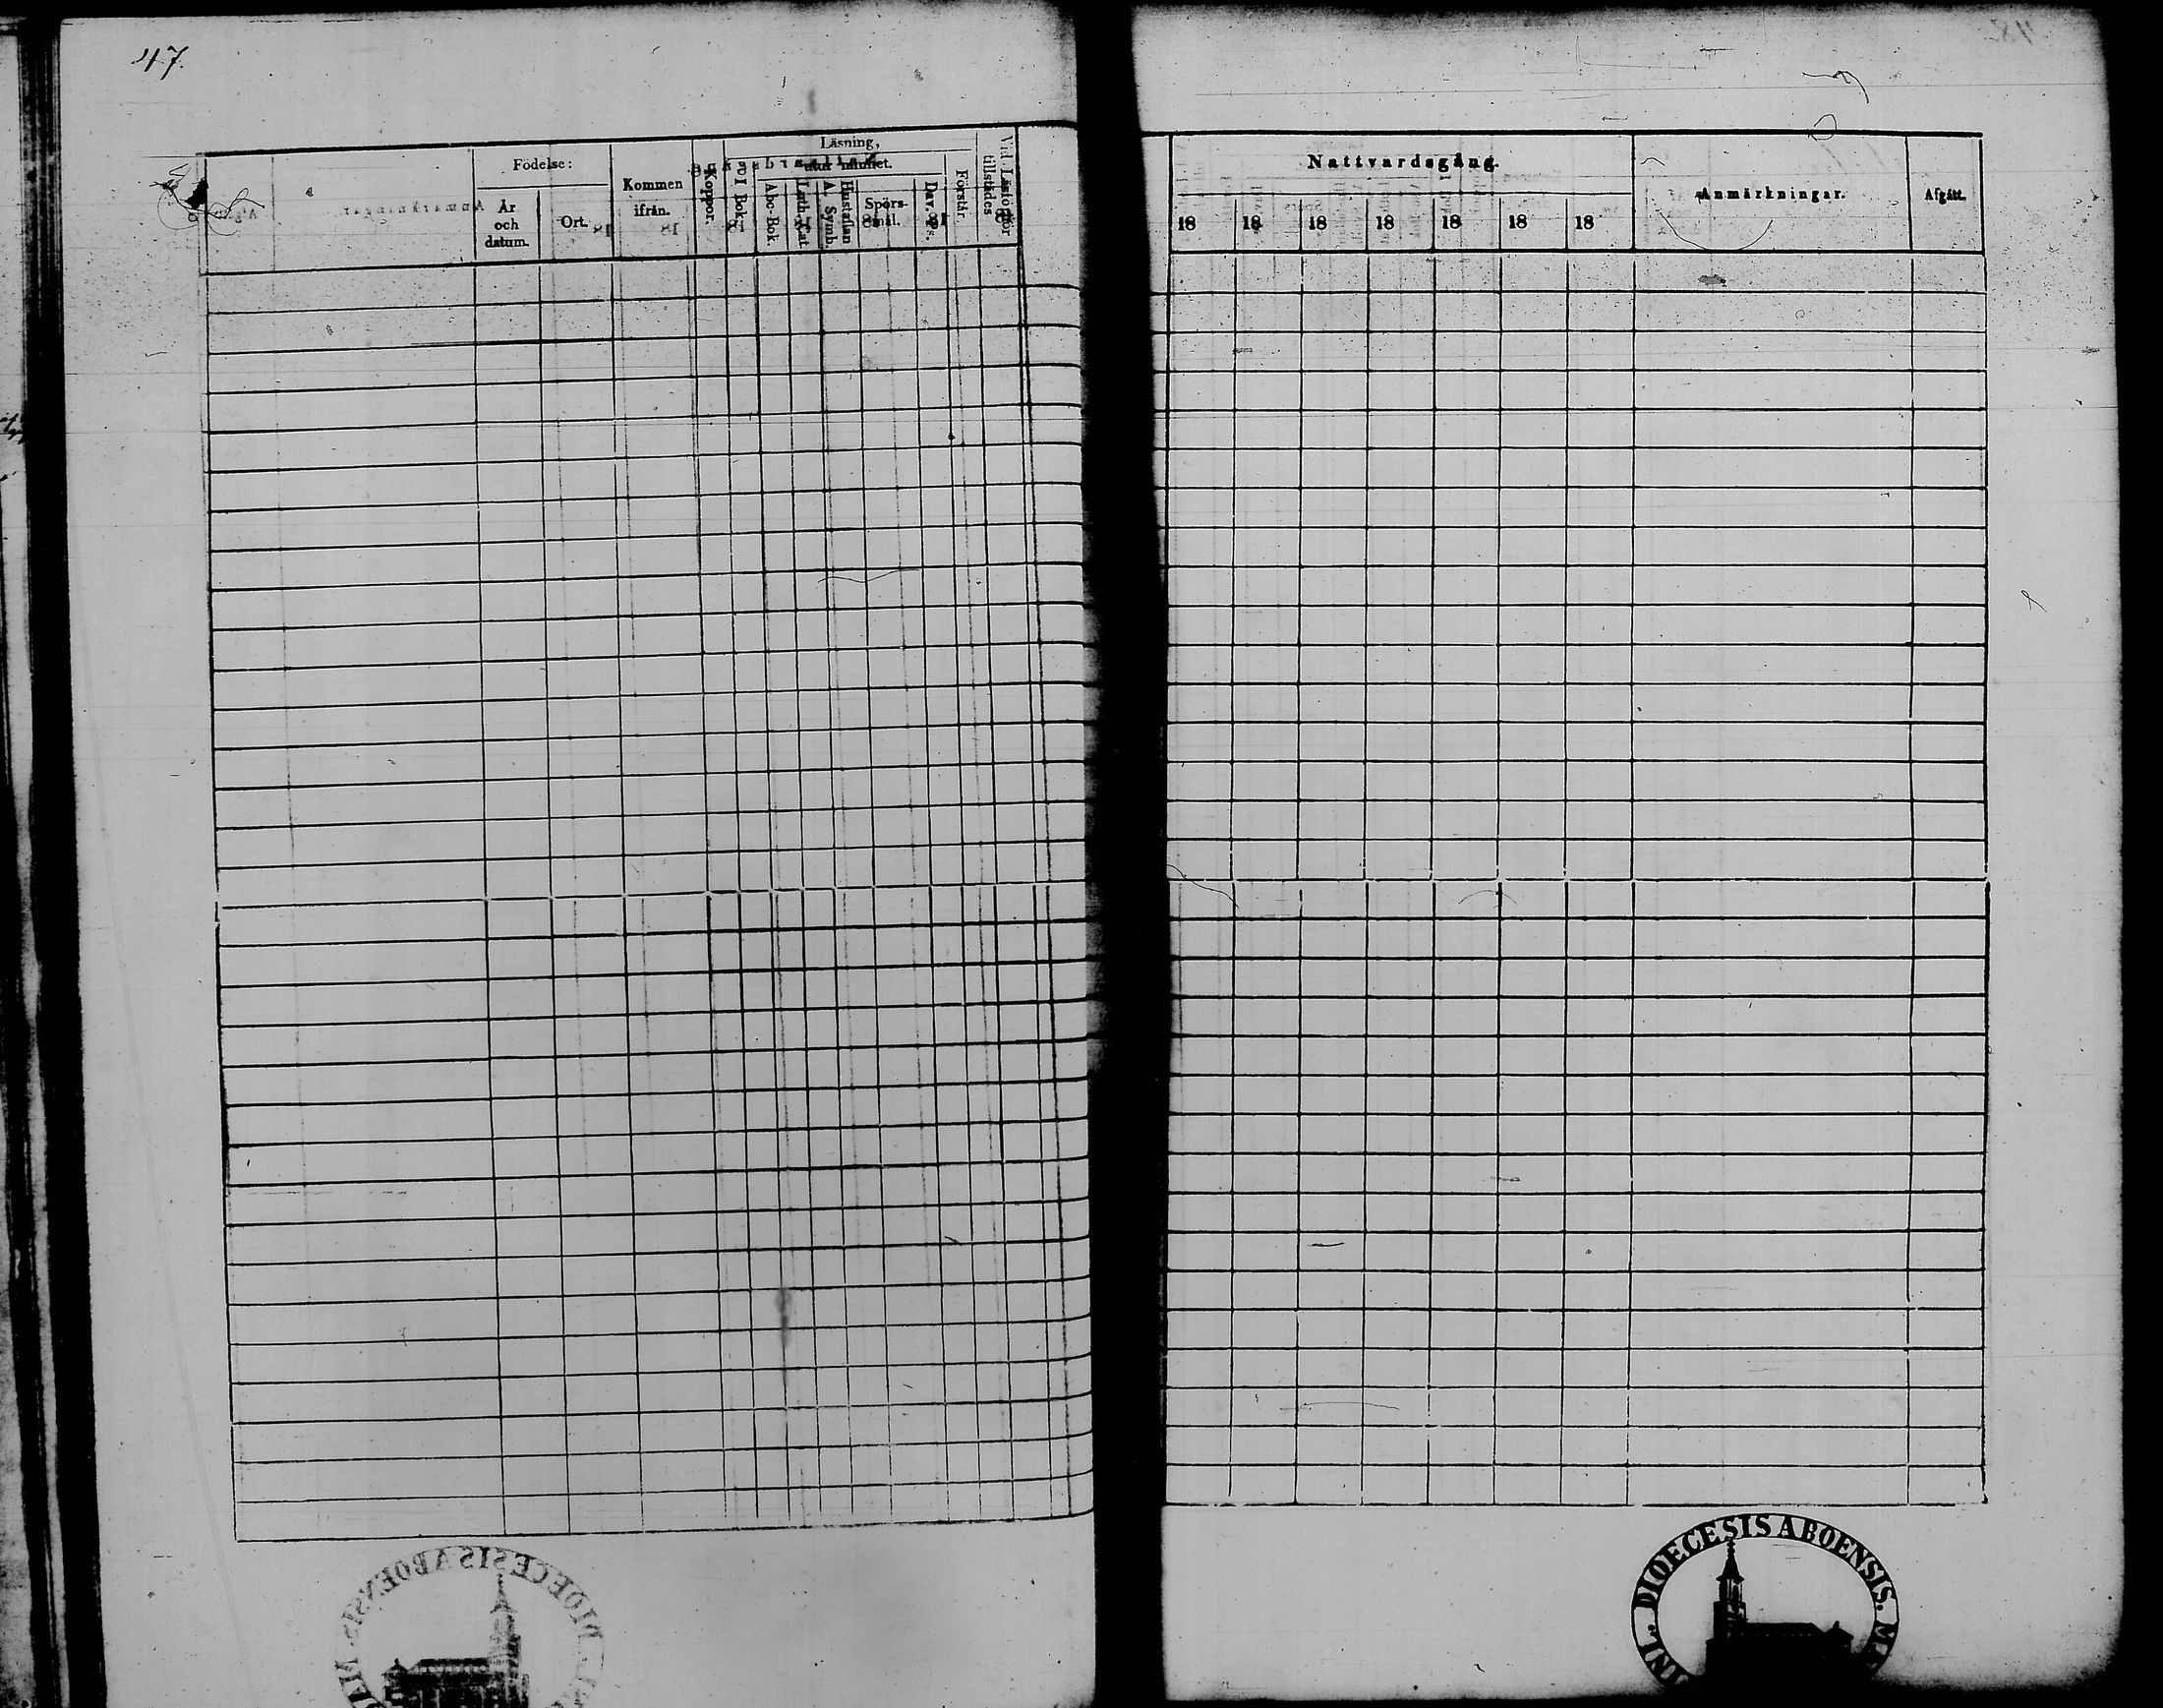 47.
Födelse:
År
och
datum.
Ort.
Kommen
ifrån.
Koppor.
Läsning,
I Bok.
utur minnet.
Abc-Bok
Luth. Cat.
A. Symb.
Hustaflan
Spörs-
mål.
Dav. Ps.
Förstår.
Vid Läseförhör
tillstädes
Nattvardsgång.
18 18 18 18 18 18 18
Anmärkningar.
Afgått.
DIOECESIS ABOENSIS.